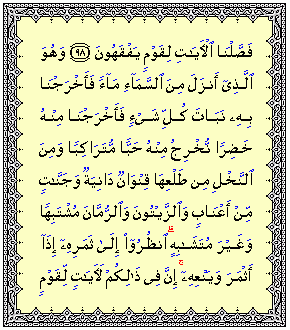 فَصَّلْنَا ٱلْـَٔايَـٰتِ لِقَوْمٍ يَفْقَهُونَ ﴿٩٨﴾ وَهُوَ
ٱلَّذِىٓ أَنزَلَ مِنَ ٱلسَّمَآءِ مَآءً فَأَخْرَجْنَا
بِهِۦ نَبَاتَ كُلِّ شَىْءٍ فَأَخْرَجْنَا مِنْهُ
خَضِرًا نُّخْرِجُ مِنْهُ حَبًّا مُّتَرَاكِبًا وَمِنَ
ٱلنَّخْلِ مِن طَلْعِهَا قِنْوَانٌ دَانِيَةٌ وَجَنَّـٰتٍ
مِّنْ أَعْنَابٍ وَٱلزَّيْتُونَ وَٱلرُّمَّانَ مُشْتَبِهًا
وَغَيْرَ مُتَشَـٰبِهٍ ۗ ٱنظُرُوٓا۟ إِلَىٰ ثَمَرِهِۦٓ إِذَآ
أَثْمَرَ وَيَنْعِهِۦٓ ۚ إِنَّ فِى ذَٰلِكُمْ لَـَٔايَـٰتٍ لِّقَوْمٍ